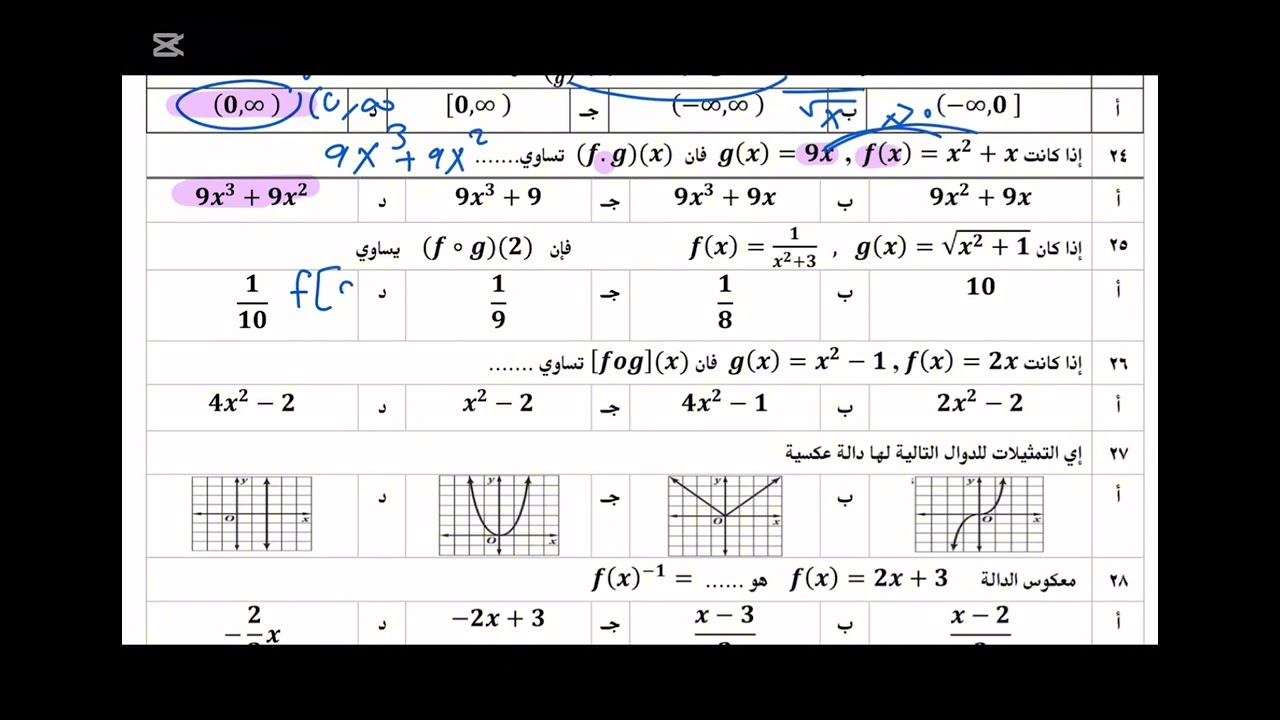 (g)
أ (−∞,0] ب (−∞,∞) جـ [0,∞) د (0,∞)
x>0 √x (0,∞
٢٤ إذا كانت f(x) = x² + x , g(x) = 9x فان (f . g)(x) تساوي.......
9x³ + 9x²
أ 9x² + 9x ب 9x³ + 9x جـ 9x³ + 9 د 9x³ + 9x²
٢٥ إذا كان g(x) = √(x² + 1) , f(x) = 1/(x²+3) فإن (f ∘ g)(2) يساوي
أ 10 ب 1/8 جـ 1/9 د 1/10
f[
٢٦ إذا كانت g(x) = x² − 1 , f(x) = 2x فان [fog](x) تساوي .......
أ 2x² − 2 ب 4x² − 1 جـ x² − 2 د 4x² − 2
٢٧ إي التمثيلات للدوال التالية لها دالة عكسية
أ y O x ب y O x جـ y O x د y O x
٢٨ معكوس الدالة f(x) = 2x + 3 هو ...... = f(x)⁻¹
أ x − 2 ب x − 3 جـ −2x + 3 د − 2 x